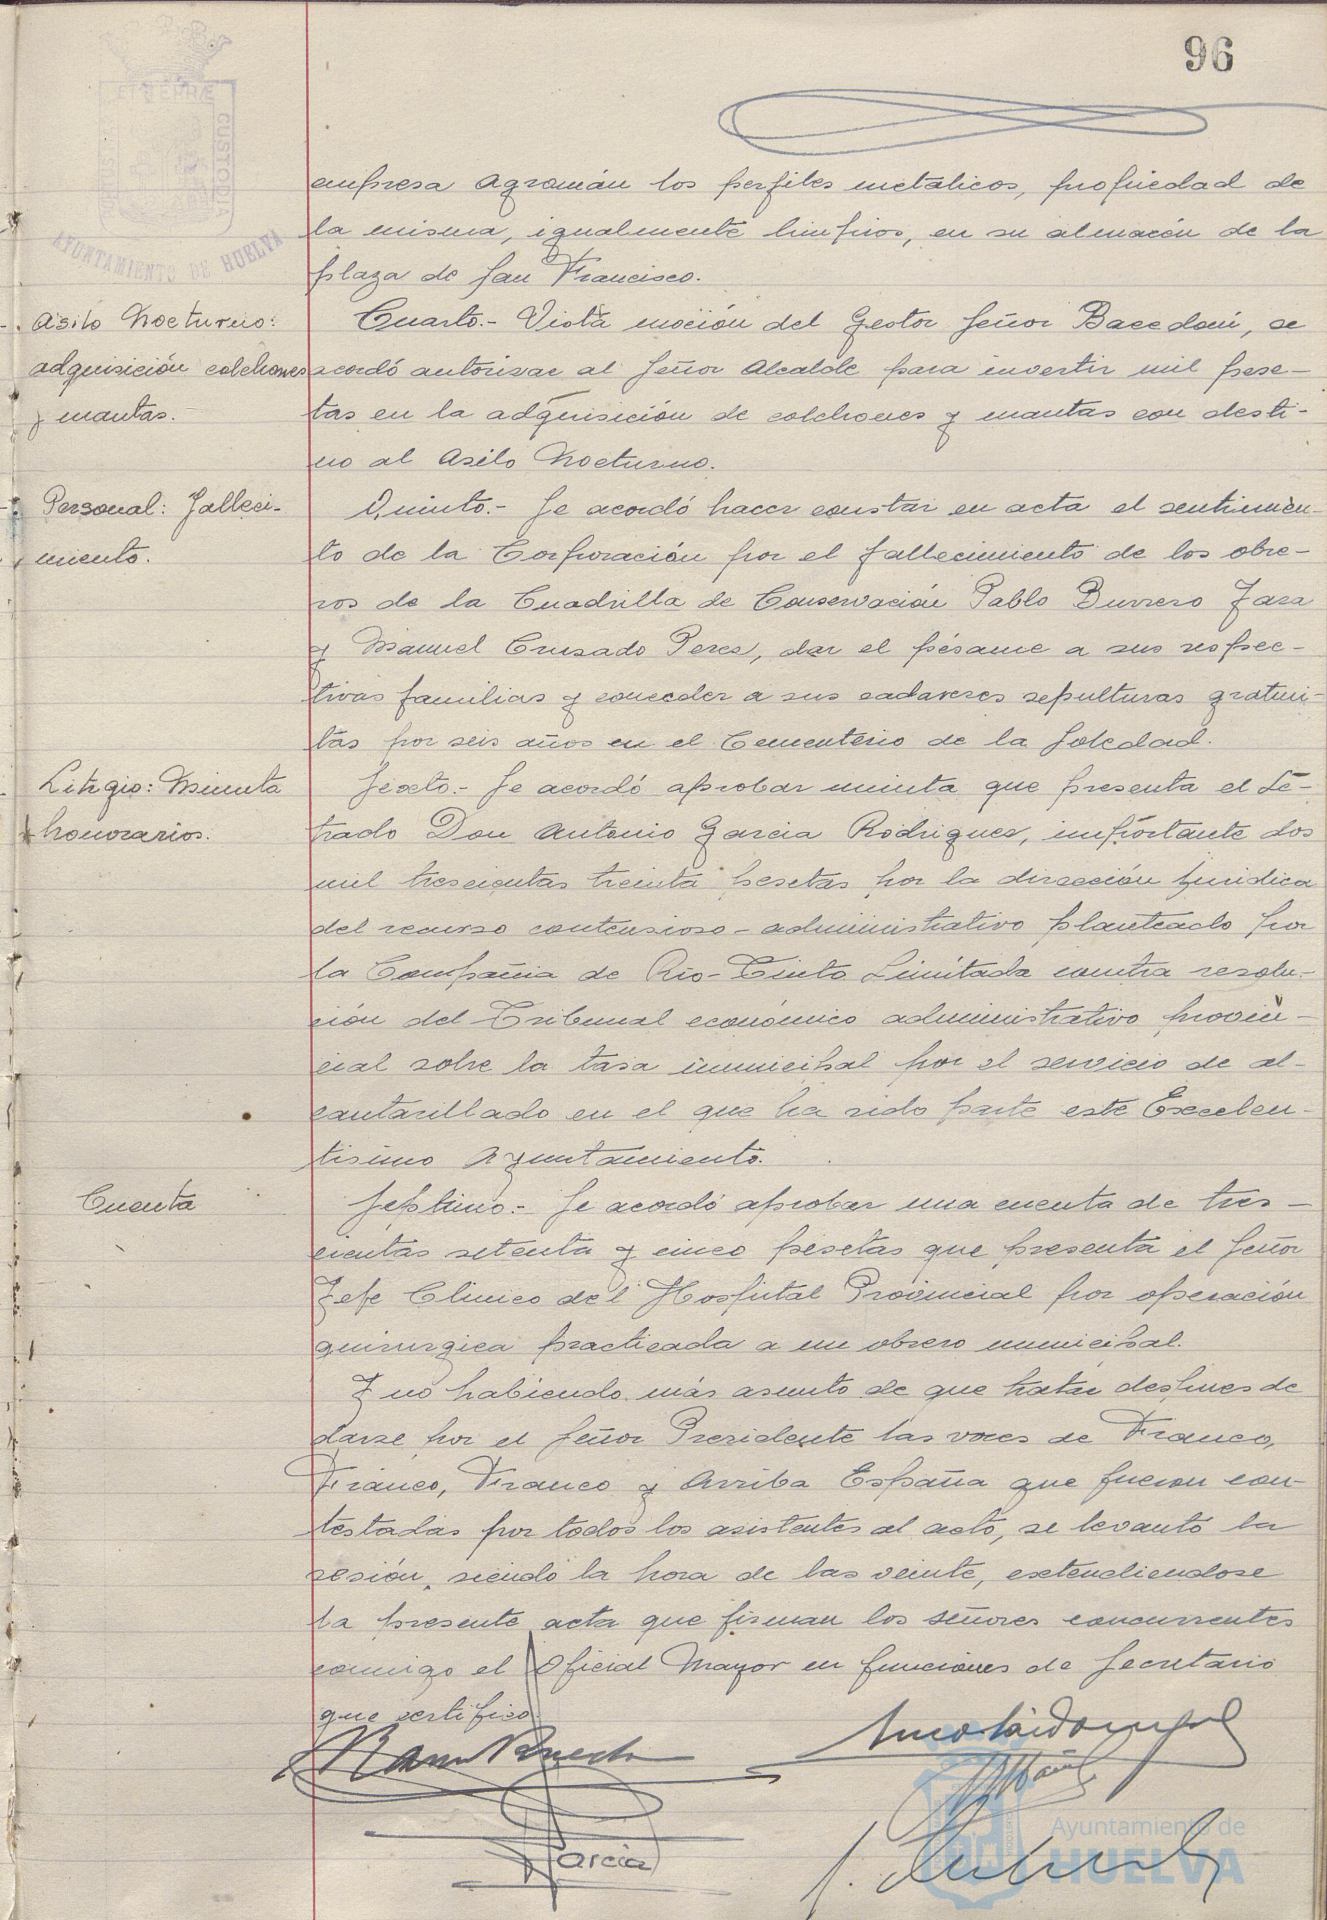 96
PORTUS
ET TERRÆ
CUSTODIA
AYUNTAMIENTO DE HUELVA
empresa Agromán los perfiles metálicos, propiedad de
la misma, igualmente limpios, en su almacén de la
plaza de San Francisco.
Asilo Nocturno:
adquisición colchones
y mantas.
Cuarto.- Vista moción del Gestor Señor Bacedoni, se
acordó autorizar al Señor Alcalde para invertir mil pese-
tas en la adquisición de colchones y mantas con desti-
no al Asilo Nocturno.
Personal: Falleci-
miento.
Quinto.- Se acordó hacer constar en acta el sentimien-
to de la Corporación por el fallecimiento de los obre-
ros de la Cuadrilla de Conservación Pablo Burrero Jara
y Manuel Crusado Perez, dar el pésame a sus respec-
tivas familias y conceder a sus cadaveres sepulturas gratui-
tas por seis años en el Cementerio de la Soledad.
Litigio: Minuta
honorarios.
Sexto.- Se acordó aprobar minuta que presenta el Le-
trado Don Antonio Garcia Rodriguez, importante dos
mil trescientas treinta pesetas por la dirección juridica
del recurso contensioso-administrativo planteado por
la Compañia de Rio-Tinto Limitada contra resolu-
ción del Tribunal económico administrativo provin-
cial sobre la tasa municipal por el servicio de al-
cantarillado en el que ha sido parte este Excelen-
tisimo Ayuntamiento.
Cuenta
Septimo.- Se acordó aprobar una cuenta de tres-
cientas setenta y cinco pesetas que presenta el Señor
Jefe Clinico del Hospital Provincial por operación
quirurgica practicada a un obrero municipal.
Y no habiendo más asunto de que tratar despues de
darse por el Señor Presidente las voces de Franco,
Franco, Franco y Arriba España que fueron con-
testadas por todos los asistentes al acto, se levantó la
sesión, siendo la hora de las veinte, extendiendose
la presente acta que firman los señores concurrentes
conmigo el Oficial Mayor en funciones de Secretario
que certifico.
Garcia
Ayuntamiento de
HUELVA